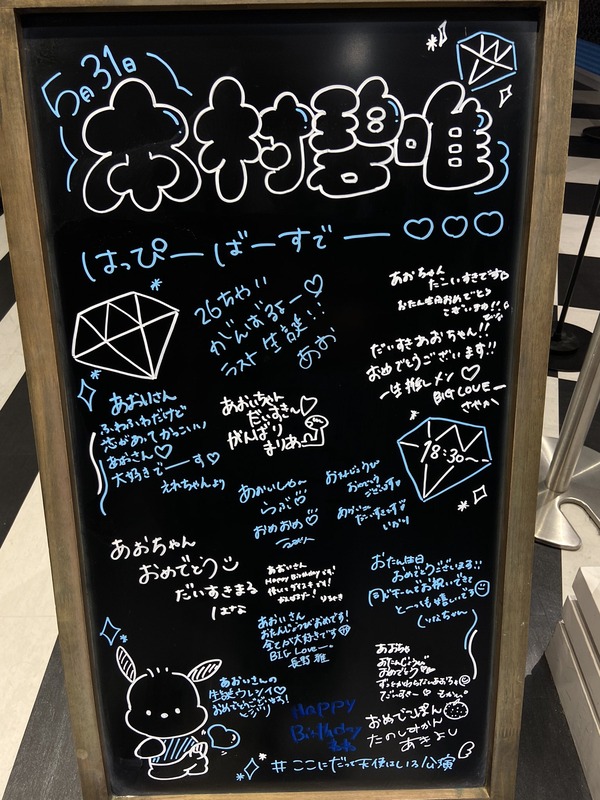 5月31日
木村碧唯
はっぴーばーすでー♡♡♡
26ちゃい
がんばるよー♡
ラスト生誕!!
あお
あおちゃん
だいすきです
お誕生日おめでとう
ございます!!
だいすきあおちゃん!!
おめでとうございます!!
一生推しメン♡
BIG LOVEー
あおいさん
ふわふわだけど
芯があってかっこいい
あおさん♡
大好きでーーす♡
えれちゃんより
あおいちゃん
だいすき♡
がんばり
まりあ
18:30~
あおいしゃ~
らぶ♡
おめおめ♡
おたんじょうび
おめでとう
ございます
だいすきです
あおちゃん
おめでとう
だいすきまる
はな
あおいさん
Happy Birthdayです!
おたん生日
おめでとうございます!!
同じチームでお祝いできて
とーっても嬉しいでる
あおいさん!
おたんじょうびおめです!
全てが大好きです
BIG Loveー。
長野 雅
あおちゃ
おたんじょうび
おめでとう
だいすきー♡
あおいさんの
生誕ウレシイ♡
おめでとうございまる!
Happy
Birthday
おめでこぽん
たのしみかん
あきよし
#ここにだって天使はいる公演